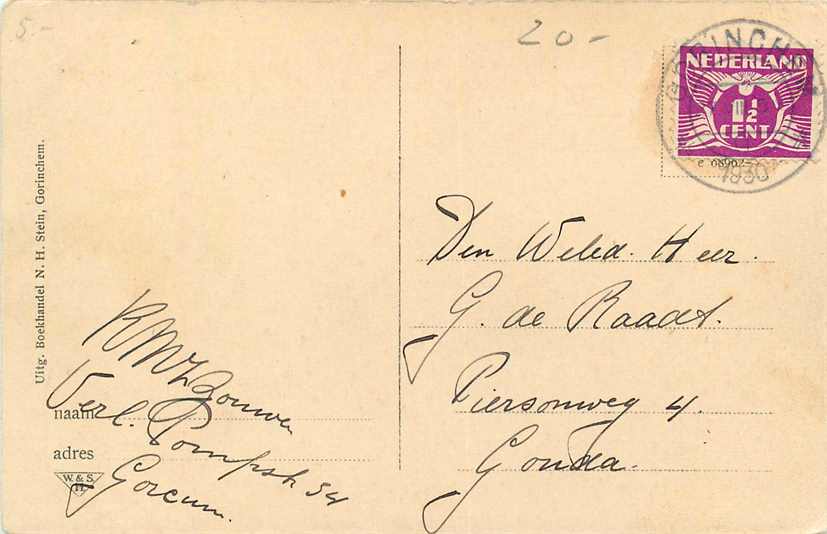 5.-
20-
GORINCHEM
1930
NEDERLAND
1½
CENT
e 68962-
Uitg. Boekhandel N. H. Stein, Gorinchem.
Den Weled. Heer.
G. de Raadt.
Piersonweg 4.
Gouda.
naam
Verl. Pompstr. 54
adres
Gorcum.
W. & S.
H.